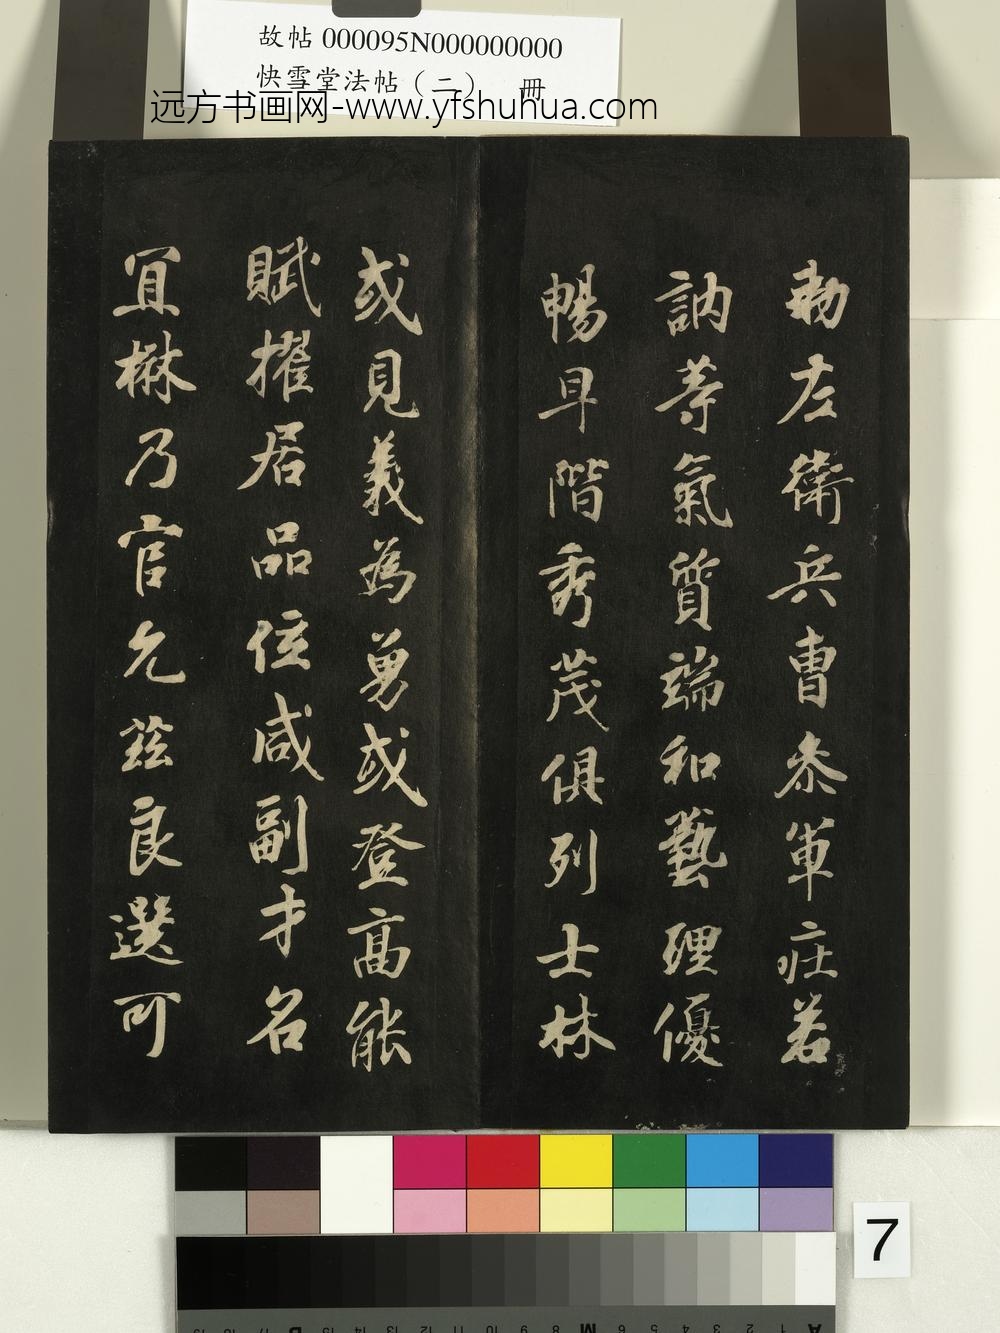 故帖 000095N000000000
快雪堂法帖（二） 冊
远方书画网-www.yfshuhua.com
勑左衛兵曹叅軍莊若
訥等氣質端和藝理優
暢早階秀茂俱列士林
或見義為勇或登高能
賦擢居品位咸副才名
宜楙乃官允茲良選可
7